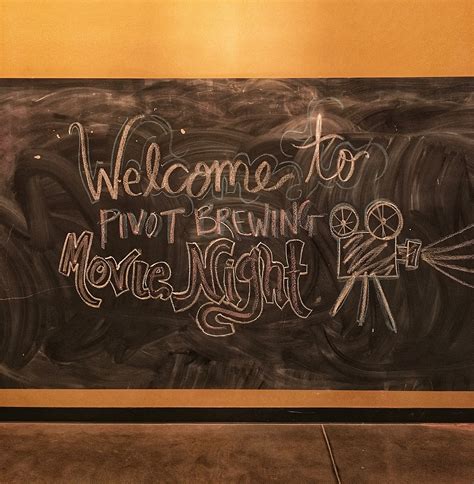 Welcome to
PIVOT BREWING
Movie Night